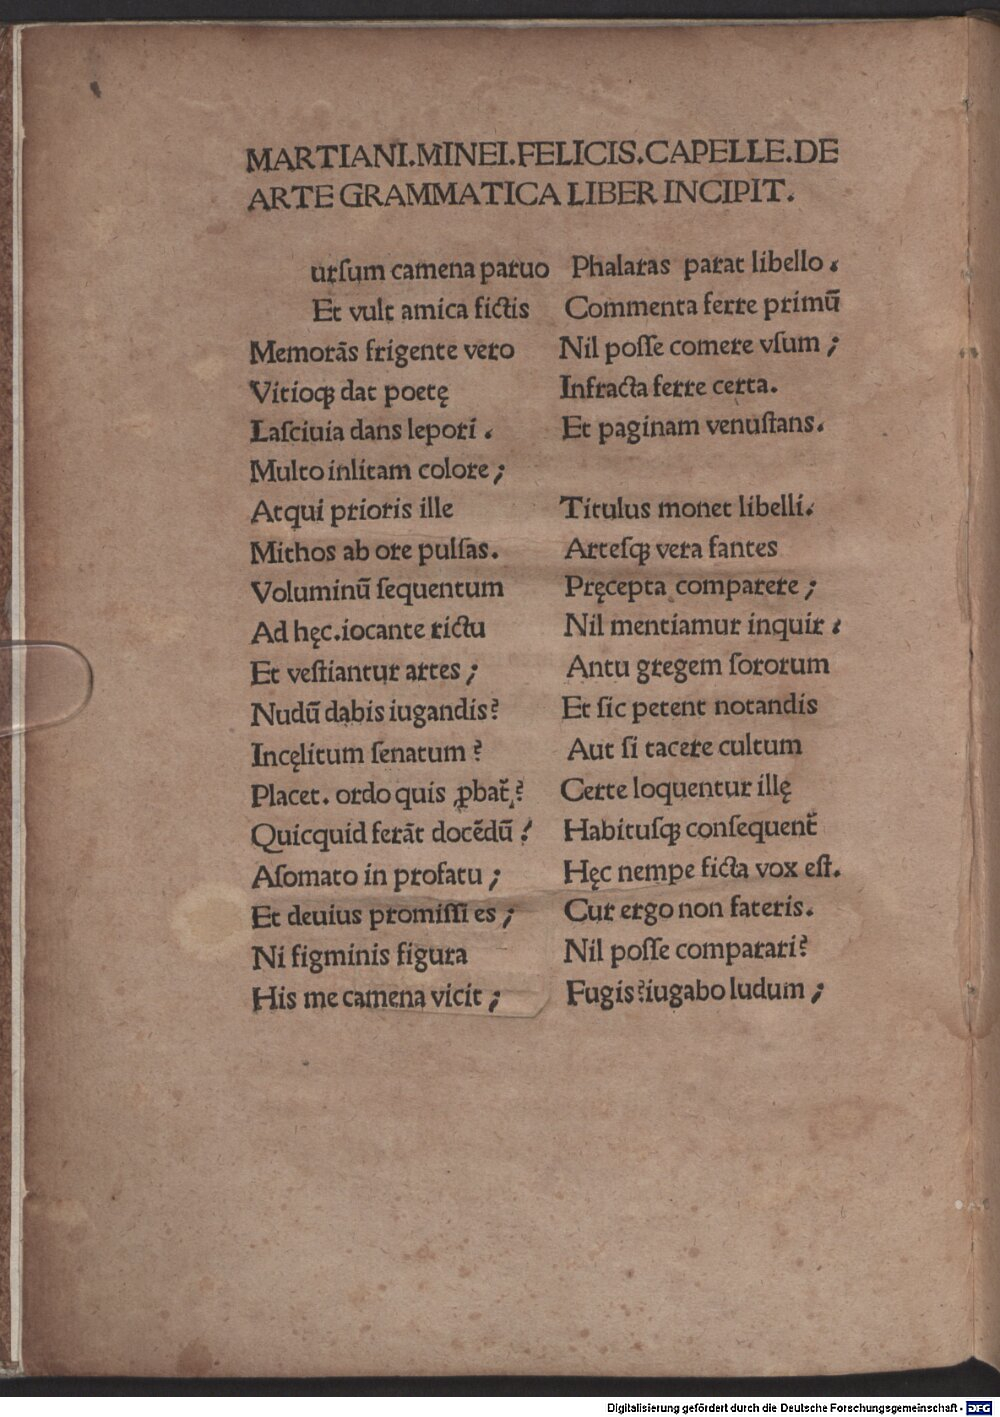 MARTIANI.MINEI.FELICIS.CAPELLE.DE
ARTE GRAMMATICA LIBER INCIPIT.
urſum camena paruo Phalaras parat libello.
Et vult amica fictis Commenta ferre primū
Memorās frigente vero Nil poſſe comere vſum;
Vitioqꝫ dat poetę Infracta ferre certa.
Laſciuia dans lepori. Et paginam venuſtans.
Multo inlitam colore;
Atqui prioris ille Titulus monet libelli.
Mithos ab ore pulſas. Arteſqꝫ vera fantes
Voluminū ſequentum Pręcepta comparere;
Ad hęc.iocante rictu Nil mentiamur inquit.
Et veſtiantur artes; Antu gregem ſororum
Nudū dabis iugandis? Et ſic petent notandis
Incęlitum ſenatum? Aut ſi tacere cultum
Placet. ordo quis ꝓbat᷑? Certe loquentur illę
Quicquid ferāt docēdū! Habituſqꝫ conſequent᷑
Aſomato in profatu; Hęc nempe ficta vox eſt.
Et deuius promiſſi es; Cur ergo non fateris.
Ni figminis figura Nil poſſe comparari?
His me camena vicit; Fugis?iugabo ludum;
Digitalisierung gefördert durch die Deutsche Forschungsgemeinschaft - DFG